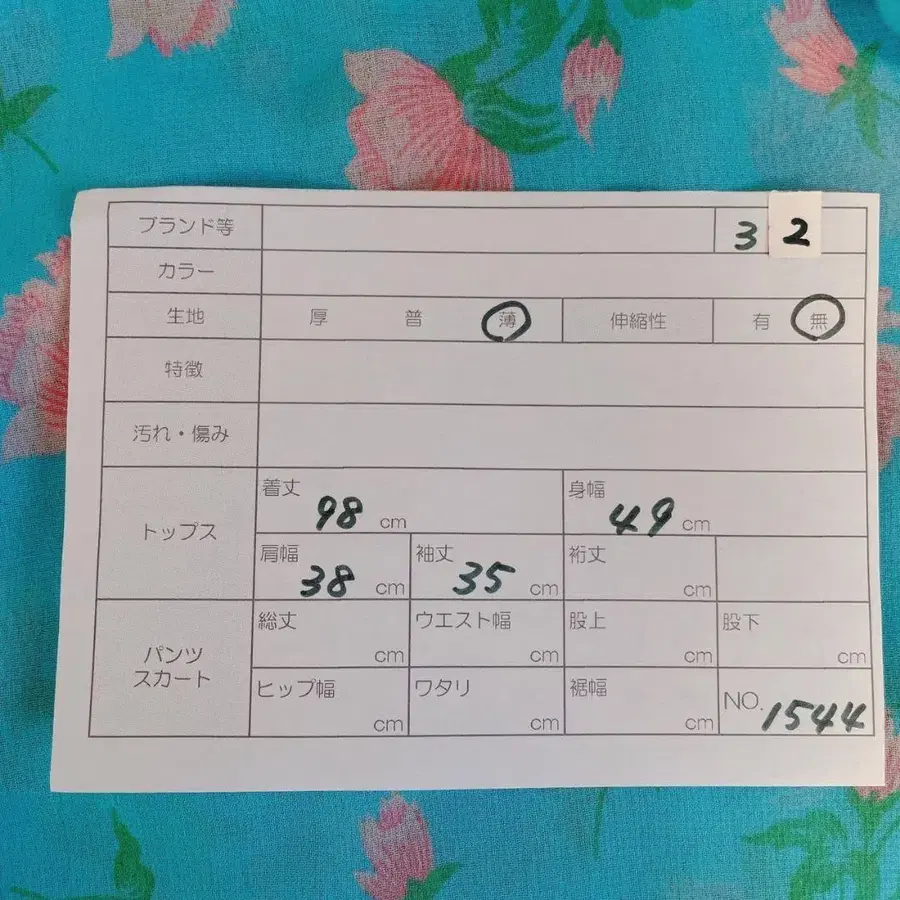 ブランド等 3 2
カラー
生地 厚 普 薄 伸縮性 有 無
特徴
汚れ・傷み
トップス
着丈 98 cm 身幅 49 cm
肩幅 38 cm 袖丈 35 cm 裄丈 cm
パンツ
スカート
総丈 cm ウエスト幅 cm 股上 cm 股下 cm
ヒップ幅 cm ワタリ cm 裾幅 cm NO. 1544